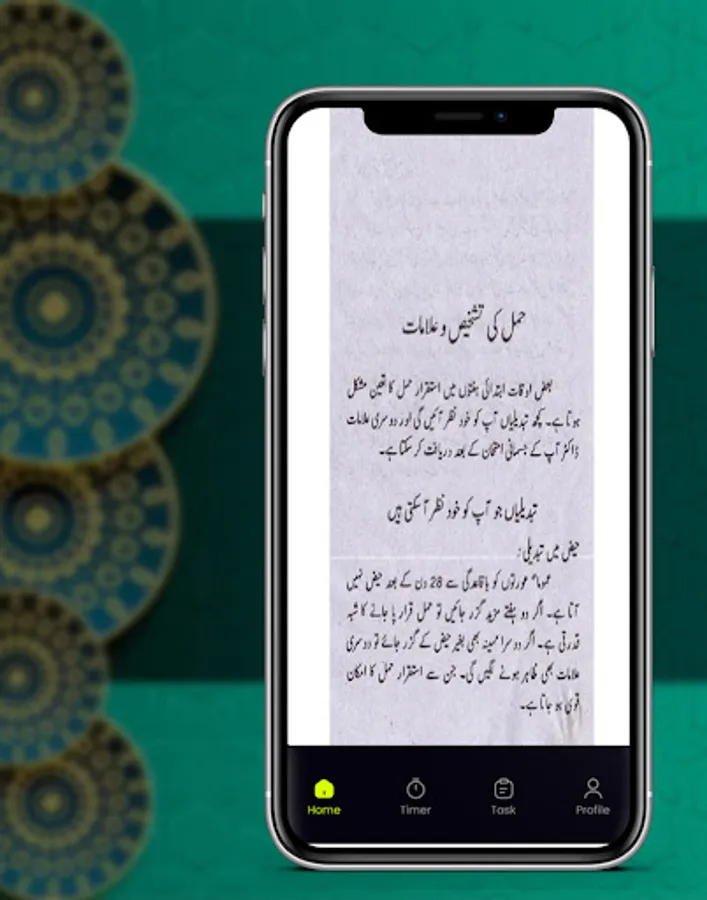 حمل کی تشخیص و علامات
بعض اوقات ابتدائی ہفتوں میں استقرار حمل کا تعین مشکل
ہوتا ہے۔ کچھ تبدیلیاں آپ کو خود نظر آئیں گی اور دوسری علامات
ڈاکٹر آپ کے جسمانی امتحان کے بعد دریافت کر سکتا ہے۔
تبدیلیاں جو آپ کو خود نظر آ سکتی ہیں
حیض میں تبدیلی:
عموماً عورتوں کو باقاعدگی سے 28 دن کے بعد حیض نہیں
آتا ہے۔ اگر دو ہفتے مزید گزر جائیں تو حمل قرار پا جانے کا شبہ
قدرتی ہے۔ اگر دوسرا مہینہ بھی بغیر حیض کے گزر جائے تو دوسری
علامات بھی ظاہر ہونے لگیں گی۔ جن سے استقرار حمل کا امکان
قوی ہو جاتا ہے۔
Home
Timer
Task
Profile